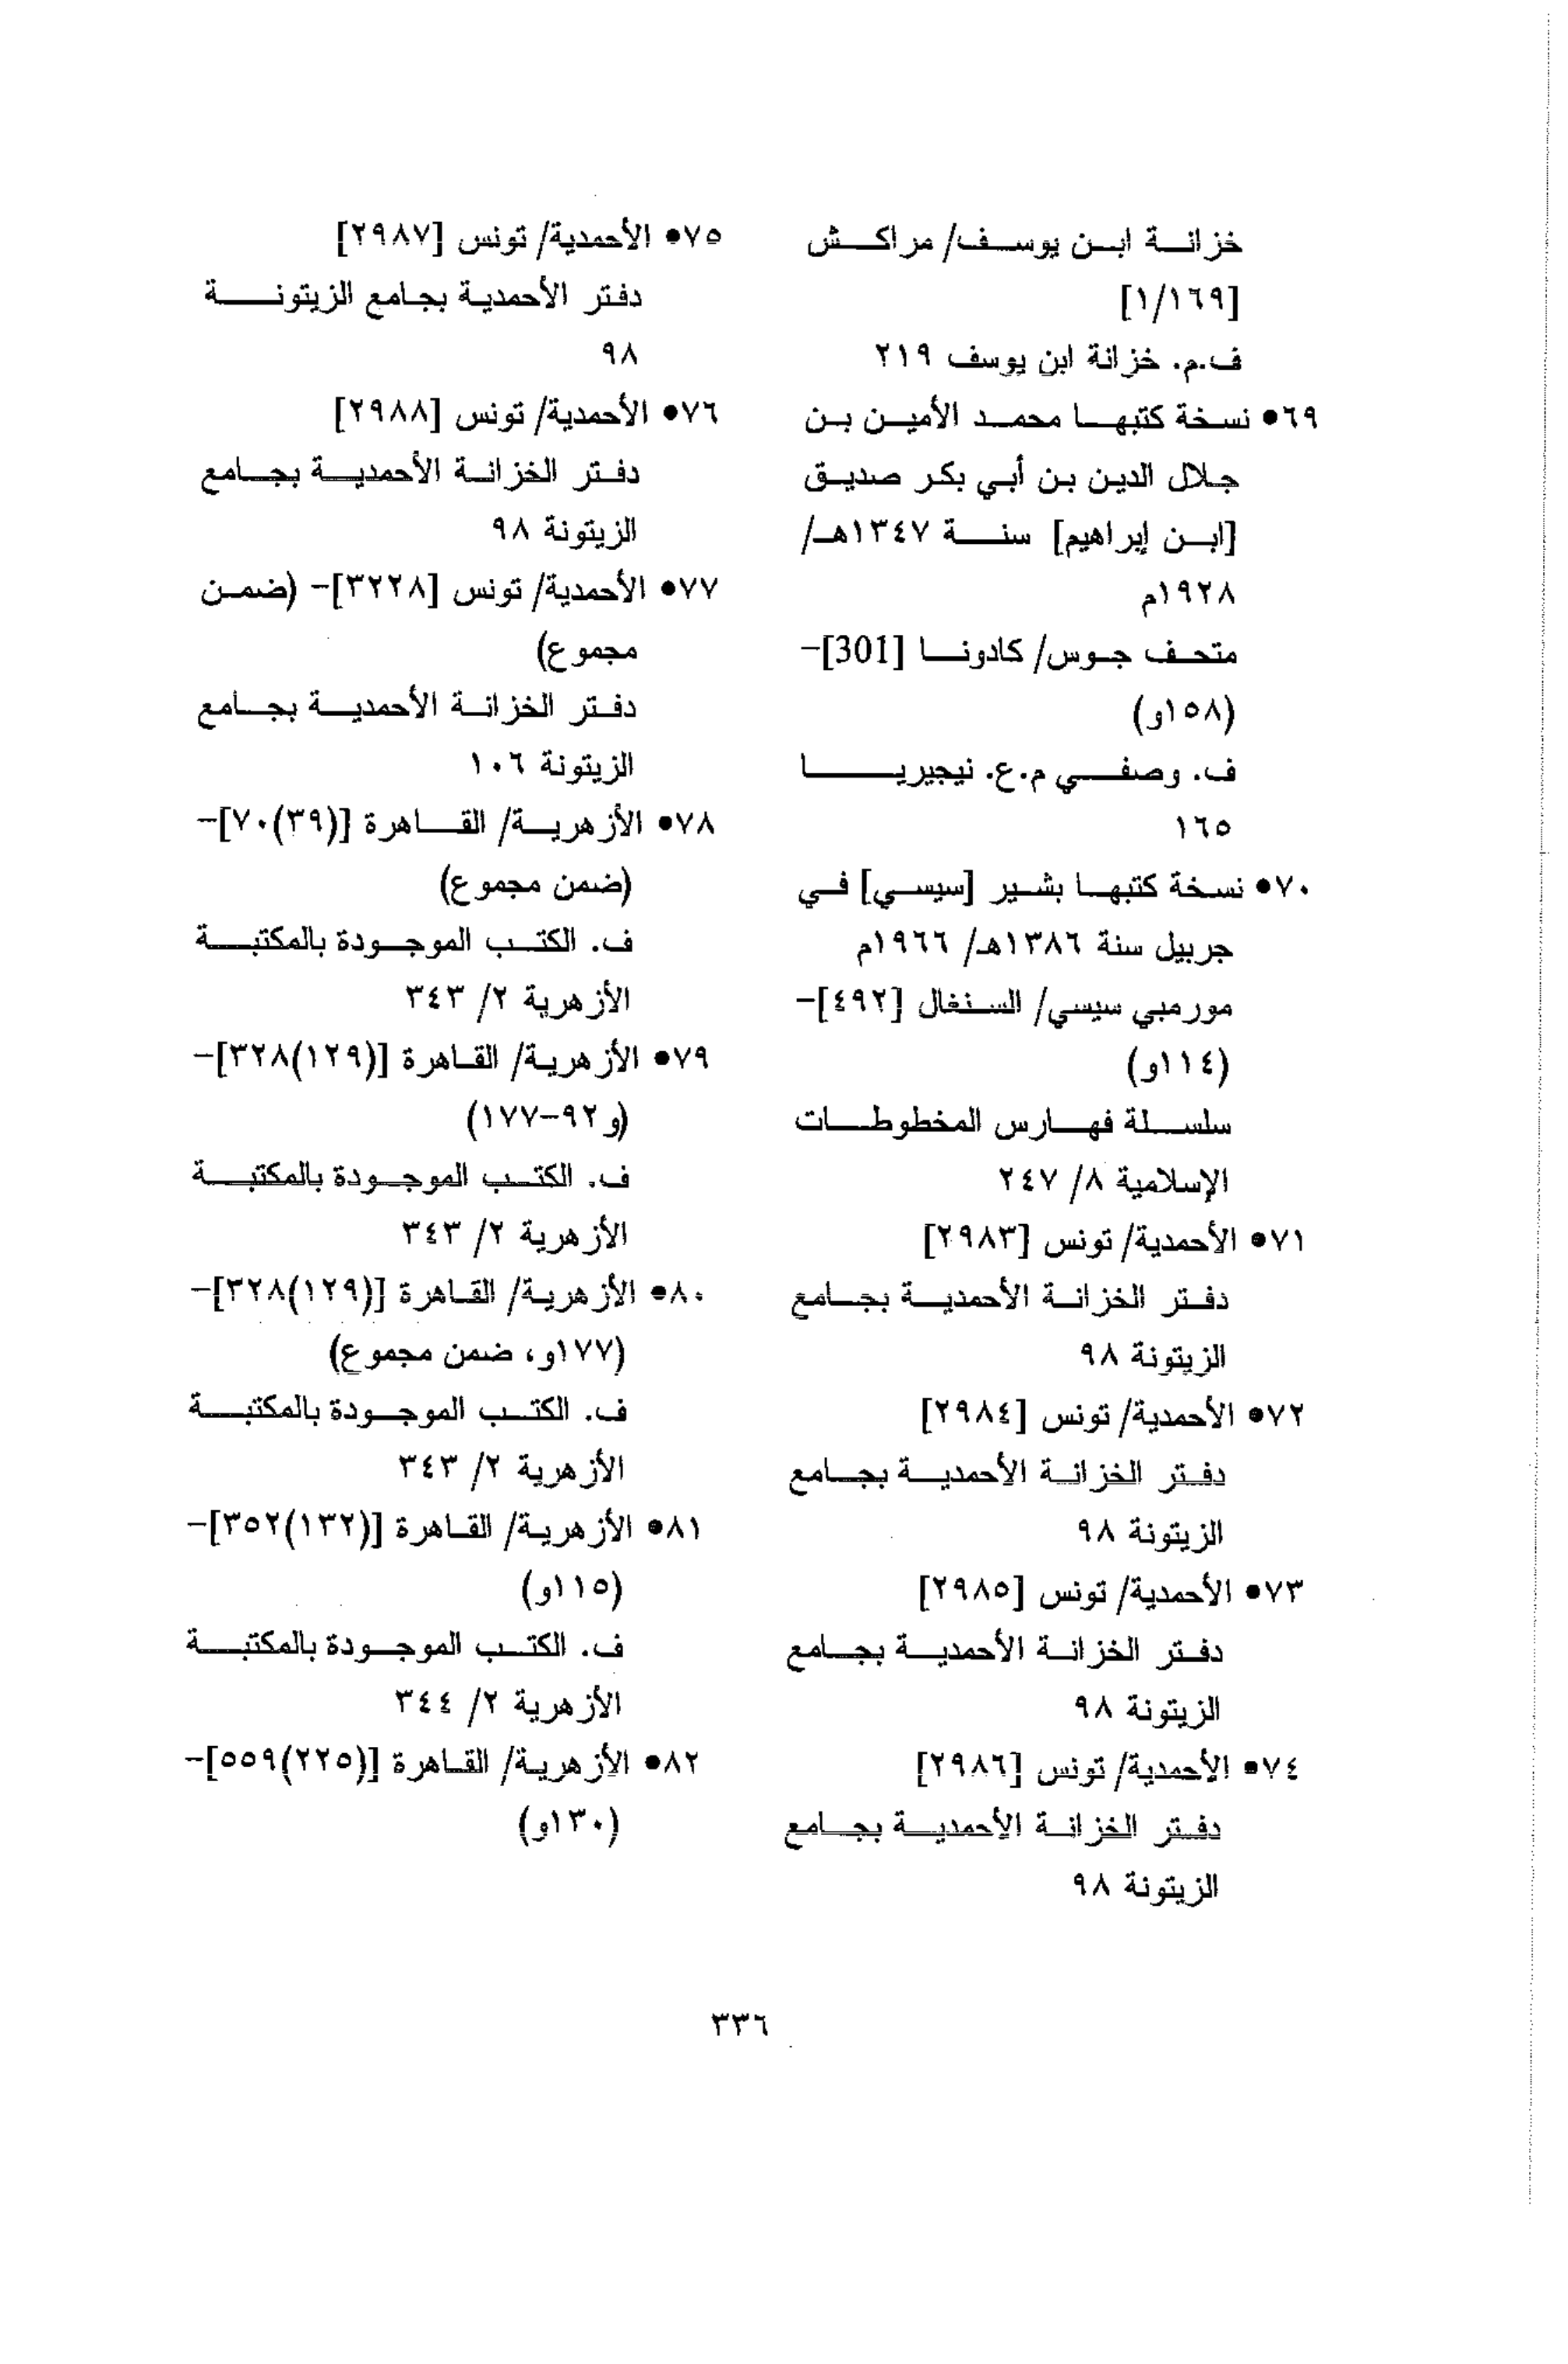 خزانة ابن يوسف/ مراكش
[١/١٦٩]
ف.م. خزانة ابن يوسف ٢١٩
٦٩• نسخة كتبها محمد الأمين بن
جلال الدين بن أبي بكر صديق
[ابن إبراهيم] سنة ١٣٤٧هـ/
١٩٢٨م
متحف جوس/ كادونا [301]-
(١٥٨و)
ف. وصفي م.ع. نيجيريا
١٦٥
٧٠• نسخة كتبها بشير [سيسي] في
جربيل سنة ١٣٨٦هـ/ ١٩٦٦م
مورمبي سيسي/ السنغال [٤٩٢]-
(١١٤و)
سلسلة فهارس المخطوطات
الإسلامية ٨/ ٢٤٧
٧١• الأحمدية/ تونس [٢٩٨٣]
دفتر الخزانة الأحمدية بجامع
الزيتونة ٩٨
٧٢• الأحمدية/ تونس [٢٩٨٤]
دفتر الخزانة الأحمدية بجامع
الزيتونة ٩٨
٧٣• الأحمدية/ تونس [٢٩٨٥]
دفتر الخزانة الأحمدية بجامع
الزيتونة ٩٨
٧٤• الأحمدية/ تونس [٢٩٨٦]
دفتر الخزانة الأحمدية بجامع
الزيتونة ٩٨
٧٥• الأحمدية/ تونس [٢٩٨٧]
دفتر الأحمدية بجامع الزيتونة
٩٨
٧٦• الأحمدية/ تونس [٢٩٨٨]
دفتر الخزانة الأحمدية بجامع
الزيتونة ٩٨
٧٧• الأحمدية/ تونس [٣٢٢٨]- (ضمن
مجموع)
دفتر الخزانة الأحمدية بجامع
الزيتونة ١٠٦
٧٨• الأزهرية/ القاهرة [(٣٩)٧٠]-
(ضمن مجموع)
ف. الكتب الموجودة بالمكتبة
الأزهرية ٢/ ٣٤٣
٧٩• الأزهرية/ القاهرة [(١٢٩)٣٢٨]-
(و٩٢-١٧٧)
ف. الكتب الموجودة بالمكتبة
الأزهرية ٢/ ٣٤٣
٨٠• الأزهرية/ القاهرة [(١٢٩)٣٢٨]-
(١٧٧و، ضمن مجموع)
ف. الكتب الموجودة بالمكتبة
الأزهرية ٢/ ٣٤٣
٨١• الأزهرية/ القاهرة [(١٣٢)٣٥٢]-
(١١٥و)
ف. الكتب الموجودة بالمكتبة
الأزهرية ٢/ ٣٤٤
٨٢• الأزهرية/ القاهرة [(٢٢٥)٥٥٩]-
(١٣٠و)
٣٣٦